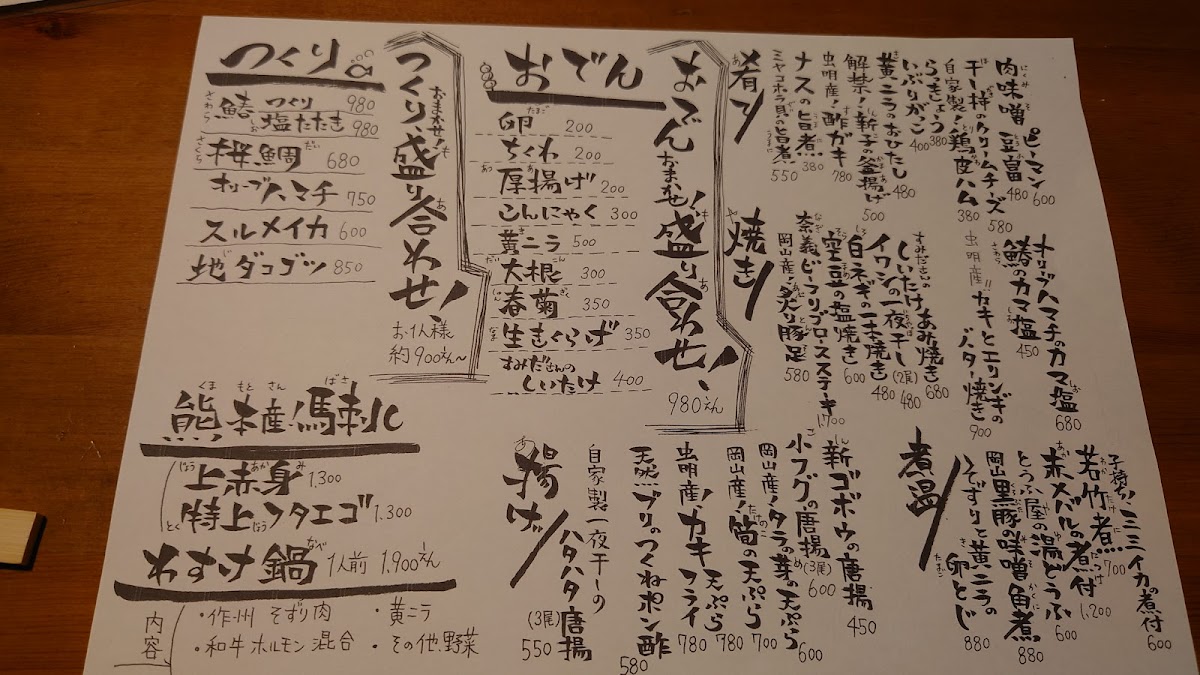 つくり
鰆 つくり 980
塩たたき 980
桜鯛 680
オリーブハマチ 750
スルメイカ 600
地ダコブツ 850
おまかせ!
つくり盛り合わせ!
お1人様
約900えん〜
おでん
卵 200
ちくわ 200
厚揚げ 200
こんにゃく 300
黄ニラ 500
大根 300
春菊 350
生きくらげ 350
すみださんの
しいたけ 400
おでんおまかせ!盛り合わせ!
980えん
熊本産馬刺し
上赤身 1,300
特上フタエゴ 1,300
わすけ鍋 1人前 1,900えん
内容
・作州 そずり肉
・黄ニラ
・和牛ホルモン混合
・その他.野菜
肴
肉味噌 ピーマン 600
豆富 480
干し柿のクリームチーズ 580
自家製!鶏皮ハム 380
らっきょう 380
いぶりがっこ 400
黄ニラのおひたし 480
解禁!新子の釜揚げ 500
虫明産!酢ガキ 780
ナスの旨煮 380
ミヤコボラ貝の旨煮 550
焼き
オリーブハマチのカマ塩 680
鰆のカマ塩 450
虫明産!!カキとエリンギの
バター焼き 900
すみださんの
しいたけあみ焼き 680
イワシの一夜干し(2尾) 480
白ネギの一本焼き 480
空豆の塩焼き 600
奈義ビーフリブロースステーキ 1,700
岡山産!炙り豚足 580
煮温
子持ち!ミミイカの煮付 600
若竹煮 700
赤メバルの煮付 1,200
とうふ屋の湯どうふ 600
岡山黒豚の味噌角煮 880
そずりと黄ニラの
卵とじ 880
揚げ
新ゴボウの唐揚 450
小フグの唐揚(3尾) 600
岡山産!タラの芽の天ぷら 600
岡山産!筍の天ぷら 700
虫明産!カキ 天ぷら 780
フライ 780
天然ブリのつくねポン酢 580
自家製一夜干しの
ハタハタ唐揚 (3尾) 550